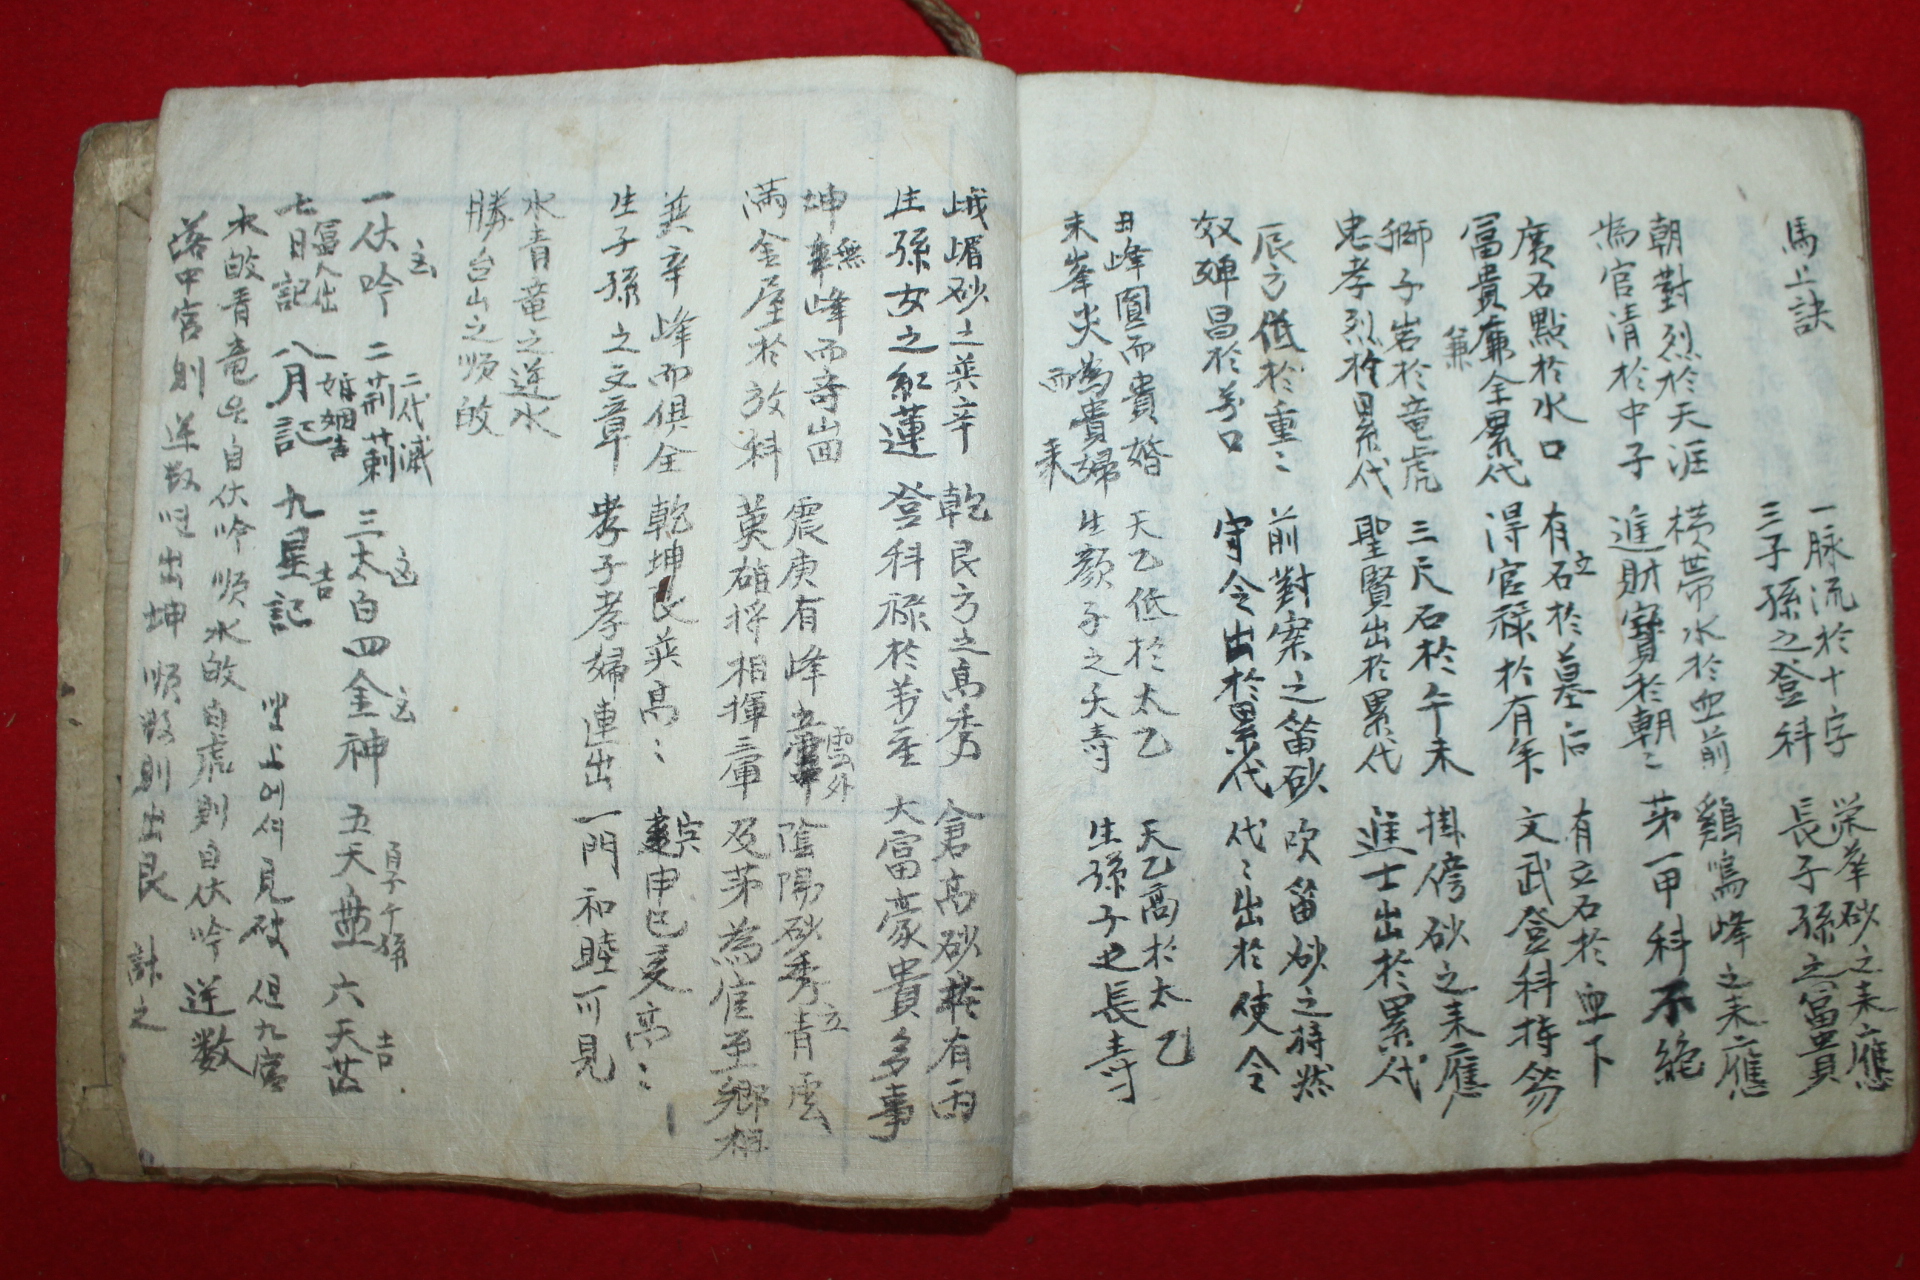 馬上訣
一脉流於十字
三子孫之登科
栄峯砂之来應
長子孫之富貴
朝對烈於天涯
為官清於中子
横帶水於血前
進財寶於朝〻
鷄鳴峰之来應
苐一甲科不絶
廣石點於水口
冨貴廉全累代
兼
有石於墓后
立
得官禄於有年
有立石於血下
文武登科持笏
獅子岩於竜虎
忠孝烈於累代
三尺石於午未
聖賢出於累代
掛傍砂之来應
進士出於累代
辰方低於重〻
奴婢昌於万口
前對案之笛砂
守令出於累代
吹笛砂之蒋然
代〻出於使令
丑峰圓而貴婚
未峯尖為貴婦
而
来
天乙低於太乙
生顔子之夭壽
天乙高於太乙
生孫子之長壽
峨嵋砂之巽辛
生孫女之紅蓮
乾艮方之高秀
登科禄於苐至
倉高砂有丙
大富豪貴多事
坤峰而奇崮
無
滿金屋於放科
震庚有峰
雲外
英雄将相揮三軍
陰陽砂秀青雲
立
及苐為官至鄉相
巽辛峰而俱全
生子孫之文章
乾坤艮巽高〻
孝子孝婦連出
申巴亥高〻
一門和睦可見
水青竜之逆水
勝台山之順破
一伏吟 二荊莿 三太白 四金神 五天亜 六天苗
二代滅
吉
七日記 八月記 九星記 坐上에셔見破 但九宮
冨人出
婚姻吉
吉
水破青竜 自伏吟順 水破白虎則自伏吟逆数
落中宮則 逆数 出坤 順数則出艮 計之